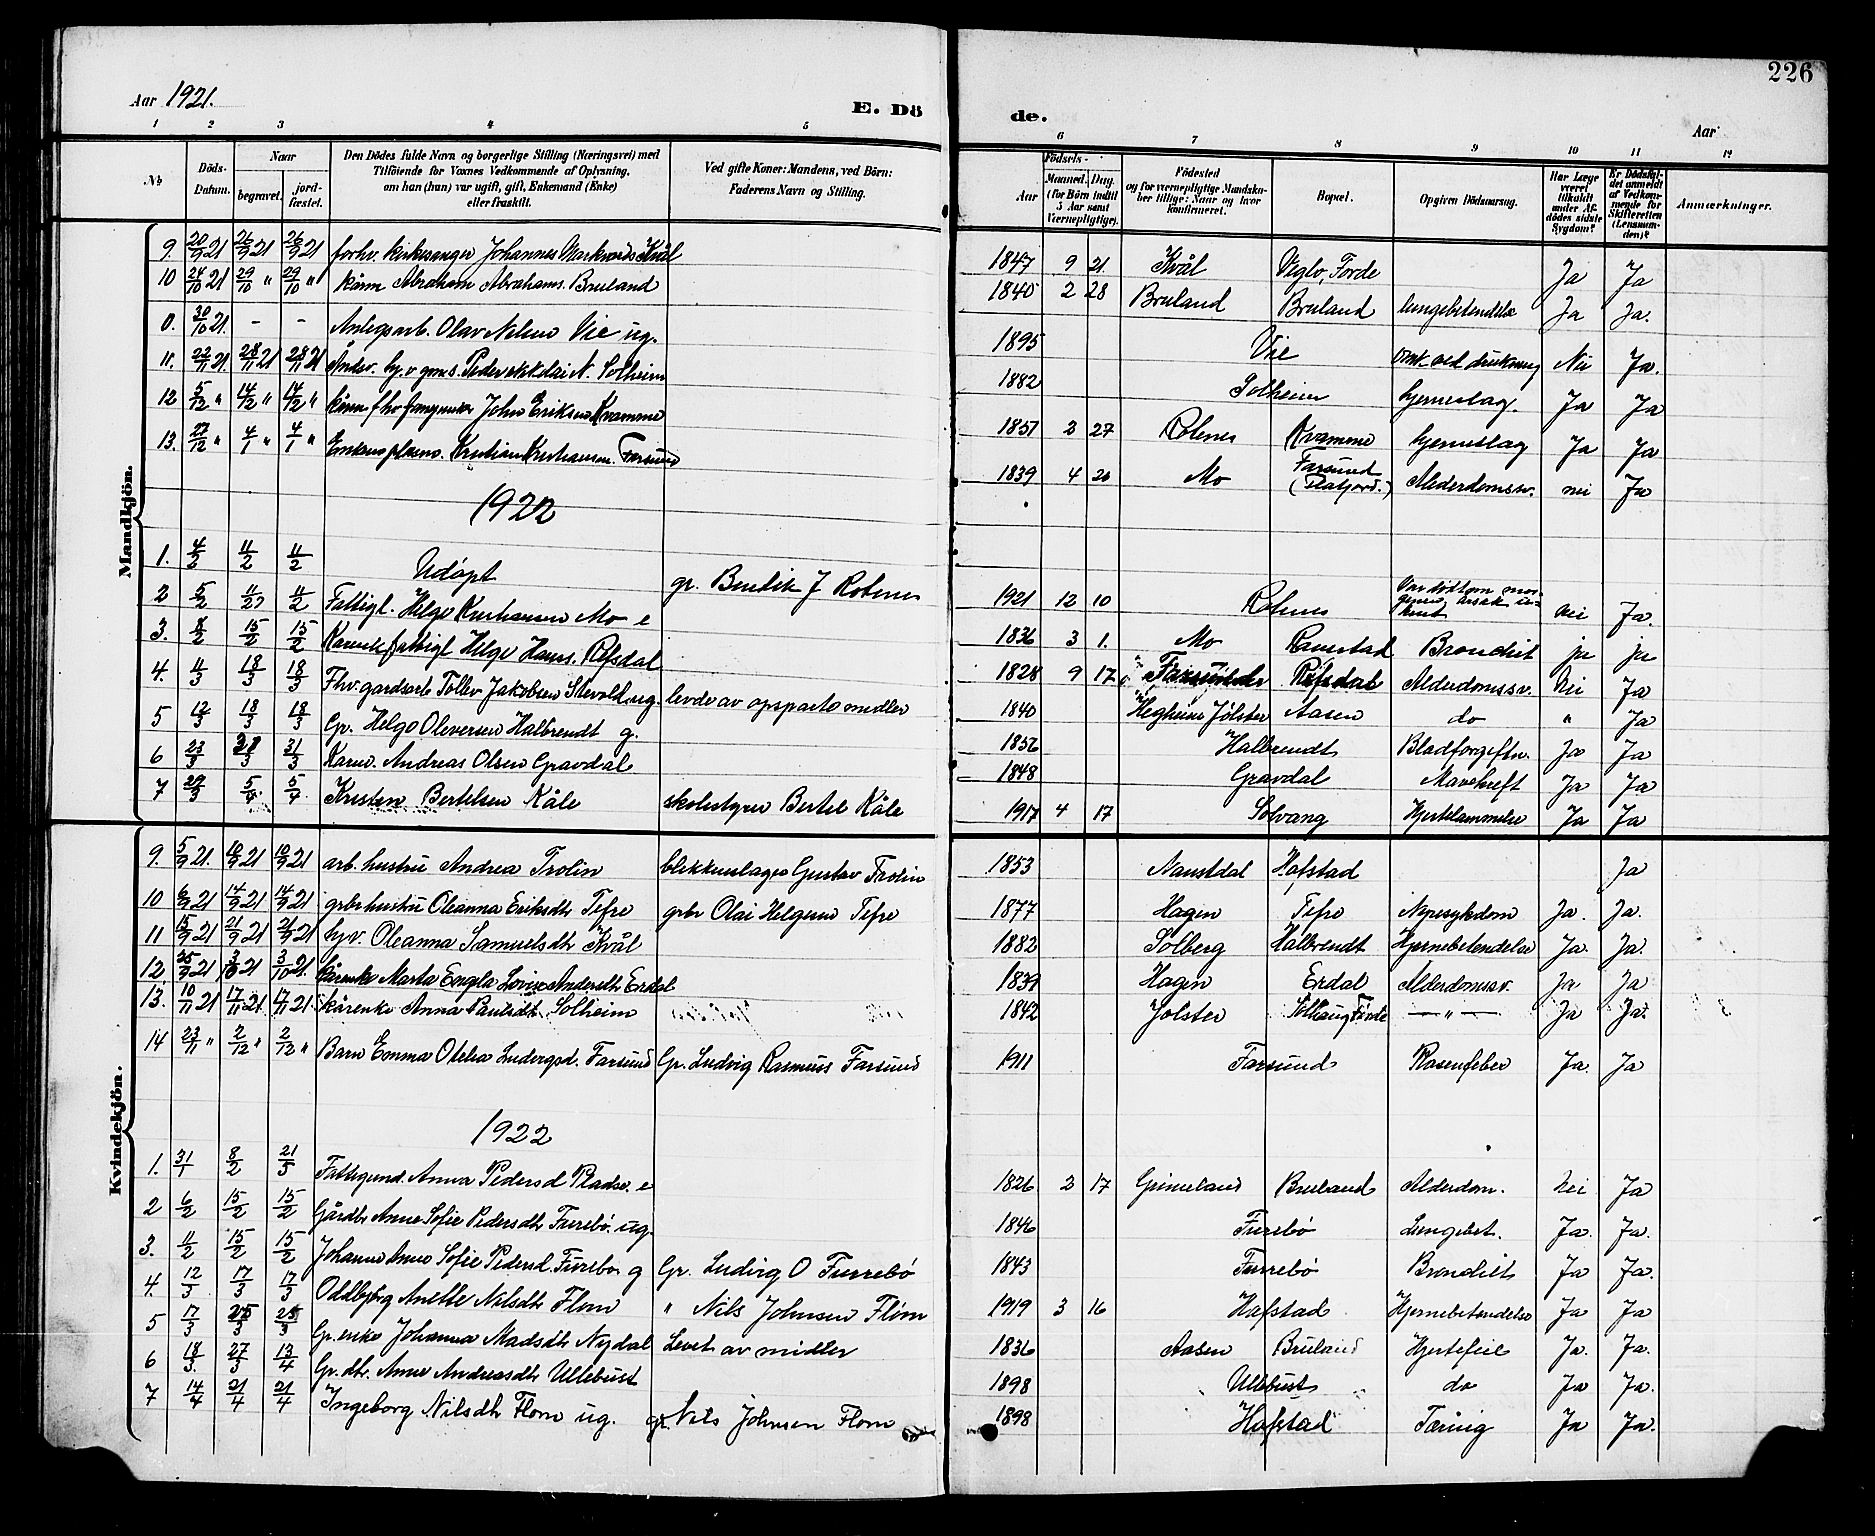 226
Aar 1921.
E. Dö
de.
Aar
1 2 3 4 5 6 7 8 9 10 11 12
№
Döds-Datum.
Naar
begravet.
jord-fæstet.
Den Dödes fulde Navn og borgerlige Stilling (Næringsvei) med Tilföiende for Voxnes Vedkommende af Oplysning, om han (hun) var ugift, gift, Enkemand (Enke) eller fraskilt.
Ved gifte Koner: Mandens, ved Börn: Faderens Navn og Stilling.
Födsels-
Aar
Maaned. Dag.
(for Börn indtil 5 Aar samt Værnepligtige).
Födested og for værnepligtige Mandskaber tillige: Naar og hvor konfirmeret.
Bopæl.
Opgiven Dödsaarsag.
Har Læge været tilkaldt under Afdödes sidste Sygdom?
Er Dödsfaldet anmeldt af Vedkommende for Skifteretten (Lensmanden)?
Anmærkninger.
Mandkjön.
9. 20/9 21 26/9 21 26/9 21 forhv. kirkesanger Johannes Markusds Kvål 1847 9 21 Kvål Veglo, Förde Ja Ja
10 24/10 21 29/10 " 29/10 " kårm Abraham Abrahams. Bruland 1840 2 28 Bruland Bruland lungebetendelse Ja Ja.
0. 30/10 21. - - Anlegsarb. Olav Nilsen Vie ug. 1895 Vie omk. ved drukning Nei Ja.
11. 22/11 21. 28/11 21 28/11 21 Peder N. Solheim 1882 Solheim hjerneslag. Ja Ja
12 5/12 " 14/12 " 14/12 " kårm fhv John Eriksen Kvamme 1851 2 27 Rolenes Kvamme hjerneslag Ja Ja
13. 27/12 " 4/1 " 4/1 " Kristian Kristiansen. Farsund 1839 4 20 Mo Farsund Alderdomssv. nei Ja
1922
1. 4/2 11/2 11/2 Udöpt gr. Bendik J Rolenes 1921 12 10 Rolenes nei Ja.
2 5/2 11/2 11/2 Fattigl. Helge Kristiansen Mo e 1836 3 1. Mo Ramstad Bronchit ja ja
3. 8/2 15/2 15/2 fattigl Helge Hans. Refsdal 1828 9 17 Refsdal Alderdomssv. Nei Ja
4. 11/3 18/3 18/3 Fhv. gardsarb Tollev Jakobsen ug. levde av opsparte midler 1840 Hegheim Jölster Aasen do " Ja
5 12/3 18/3 18/3 Gr. Helge Oleversen Halbrendt g. 1856 Halbrendt Blodforgiftn. Ja Ja
6 23/3 31/3 31/3 Karm. Andreas Olsen Gravdal 1848 Gravdal Mavekreft Ja Ja
7 29/3 5/4 5/4 Kristen Bertelsen Kåle skolestyrer Bertel Kåle 1917 4 17 Solvang Hjertelammelse Ja Ja
Kvindekjön.
9. 5/9 21. 10/9 21 10/9 21 arb. hustru Andrea Trolin blikkenslager Gustav Trolin 1853 Naustdal Hafstad Ja
10 6/9 21 14/9 21 14/9 21 grbr hustru Oleanna Eriksdtr Tefre grbr Olai Helgesen Tefre 1877 Hagen Tefre Nyresykdom Ja. Ja.
11 15/9 21 21/9 21 21/9 21 hjv. Oleanna Samuelsdtr Kvål 1882 Solberg Halbrendt Hjernebetendelse Ja. Ja.
12 25/9 21 3/10 21 3/10 21. kårenke Marta Engla Lovise Andersdtr Erdal 1839 Hagen Erdal Alderdomssv. Ja Ja
13. 10/11 21 17/11 21. 17/11 21. kårenke Anna Paulsdtr Solheim 1842 Jölster Solhaug Förde — " — Ja Ja.
14 23/11 " 2/12 " 2/12 " Barn Emma Otelia Ludvigsd. Farsund Gr. Ludvig Rasmus Farsund 1911 Farsund Rosenfeber Ja. Ja
1922
1. 31/1 8/2 21/5 Anna Pedersd e 1826 2 17 Grimeland Bruland Alderdom. Nei Ja
2 6/2 15/2 15/2 Gårdbr Anne Sofie Pedersdtr Furebö. ug. 1846 Furebö Lungebet. Ja. Ja.
3. 11/2 15/2 15/2 Johanne Anne Sofie Pedersd. Furebö g Gr. Ludvig O Furrebö 1843 Furrebö Bronchit Ja Ja.
4. 12/3 17/3 17/3 Oddbjörg Anette Nilsdtr Flom " Nils Johnsen Flöm 1919 3 16 Hafstad Hjernebetendelse Ja Ja
5 17/3 25/3 25/3 Gr. enke Johanna Madsdtr Nydal Levet av midler 1836 Aasen Bruland Hjertefeil Ja. Ja.
6 18/3. 27/3 13/4 Gr. dtr. Anne Andreasdtr Ullebust 1898 Ullebust do Ja Ja.
7 14/4 21/4 21/4 Ingeborg Nilsdtr Flom ug. gr. Nils Johnsen Flom 1898 Hafstad Tæring Ja Ja.